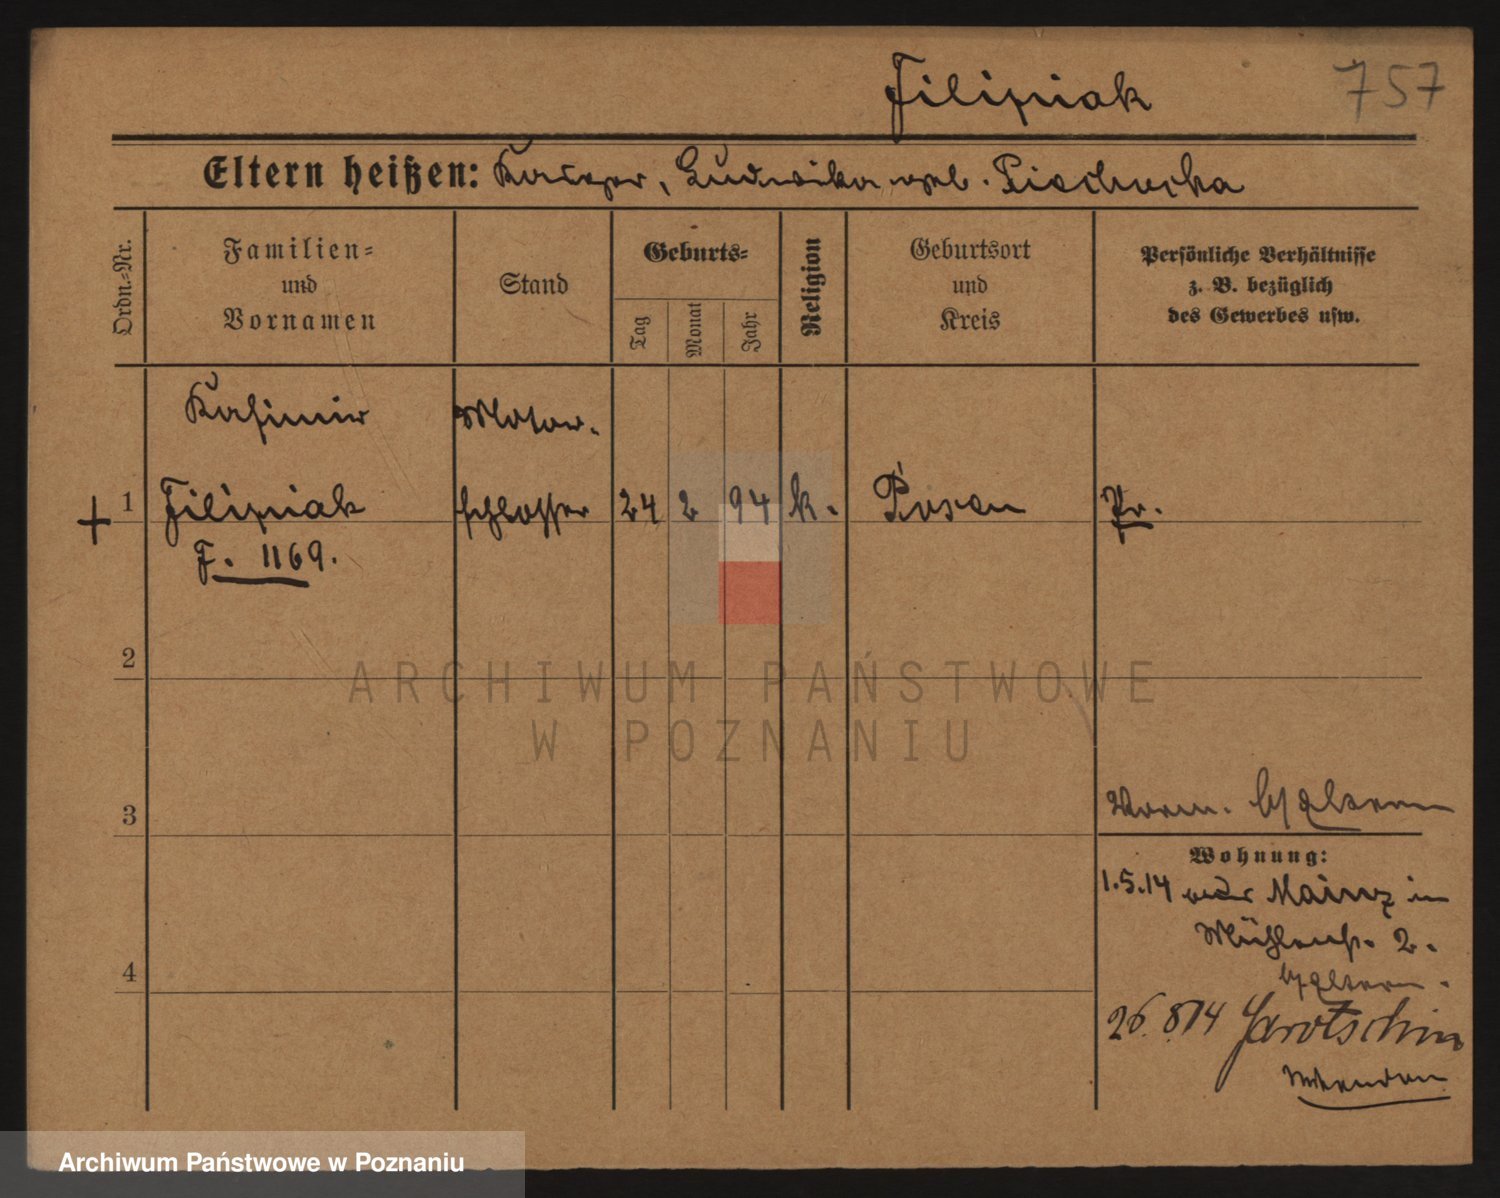 Filipiak 757
Eltern heißen: Kasper, Ludwika geb. Piechocka
Ordn.-Nr.
Familien=
und
Vornamen
Stand
Geburts=
Tag
Monat
Jahr
Religion
Geburtsort
und
Kreis
Persönliche Verhältnisse
z. B. bezüglich
des Gewerbes usw.
Kasimir Motor.
+ 1 Filipiak schlosser 24 2 94 k. Posen Pr.
F. 1169.
2
ARCHIWUM PAŃSTWOWE
W POZNANIU
3 Eltern
Wohnung:
1.5.14 Mainz in
Mühlenstr. 2.
4 Eltern.
26.8.14 Jarotschin
Archiwum Państwowe w Poznaniu